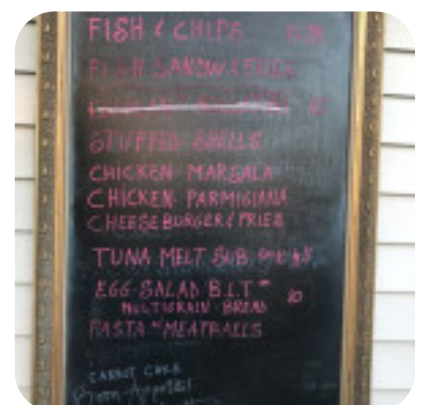 FISH & CHIPS
FISH SANDW & FRIES
STUFFED SHELLS
CHICKEN MARSALA
CHICKEN PARMIGIANA
CHEESEBURGER & FRIES
TUNA MELT SUB
EGG SALAD B.L.T
MULTIGRAIN BREAD
10
PASTA MEATBALLS
CARROT CAKE
Bon Appetit